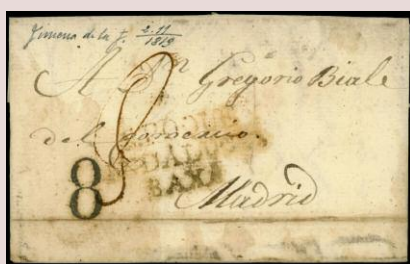 Jimena de la F. 2.11
1819
A Dn Gregorio Biale
del
ANDALUCIA
BAXA
8
Madrid